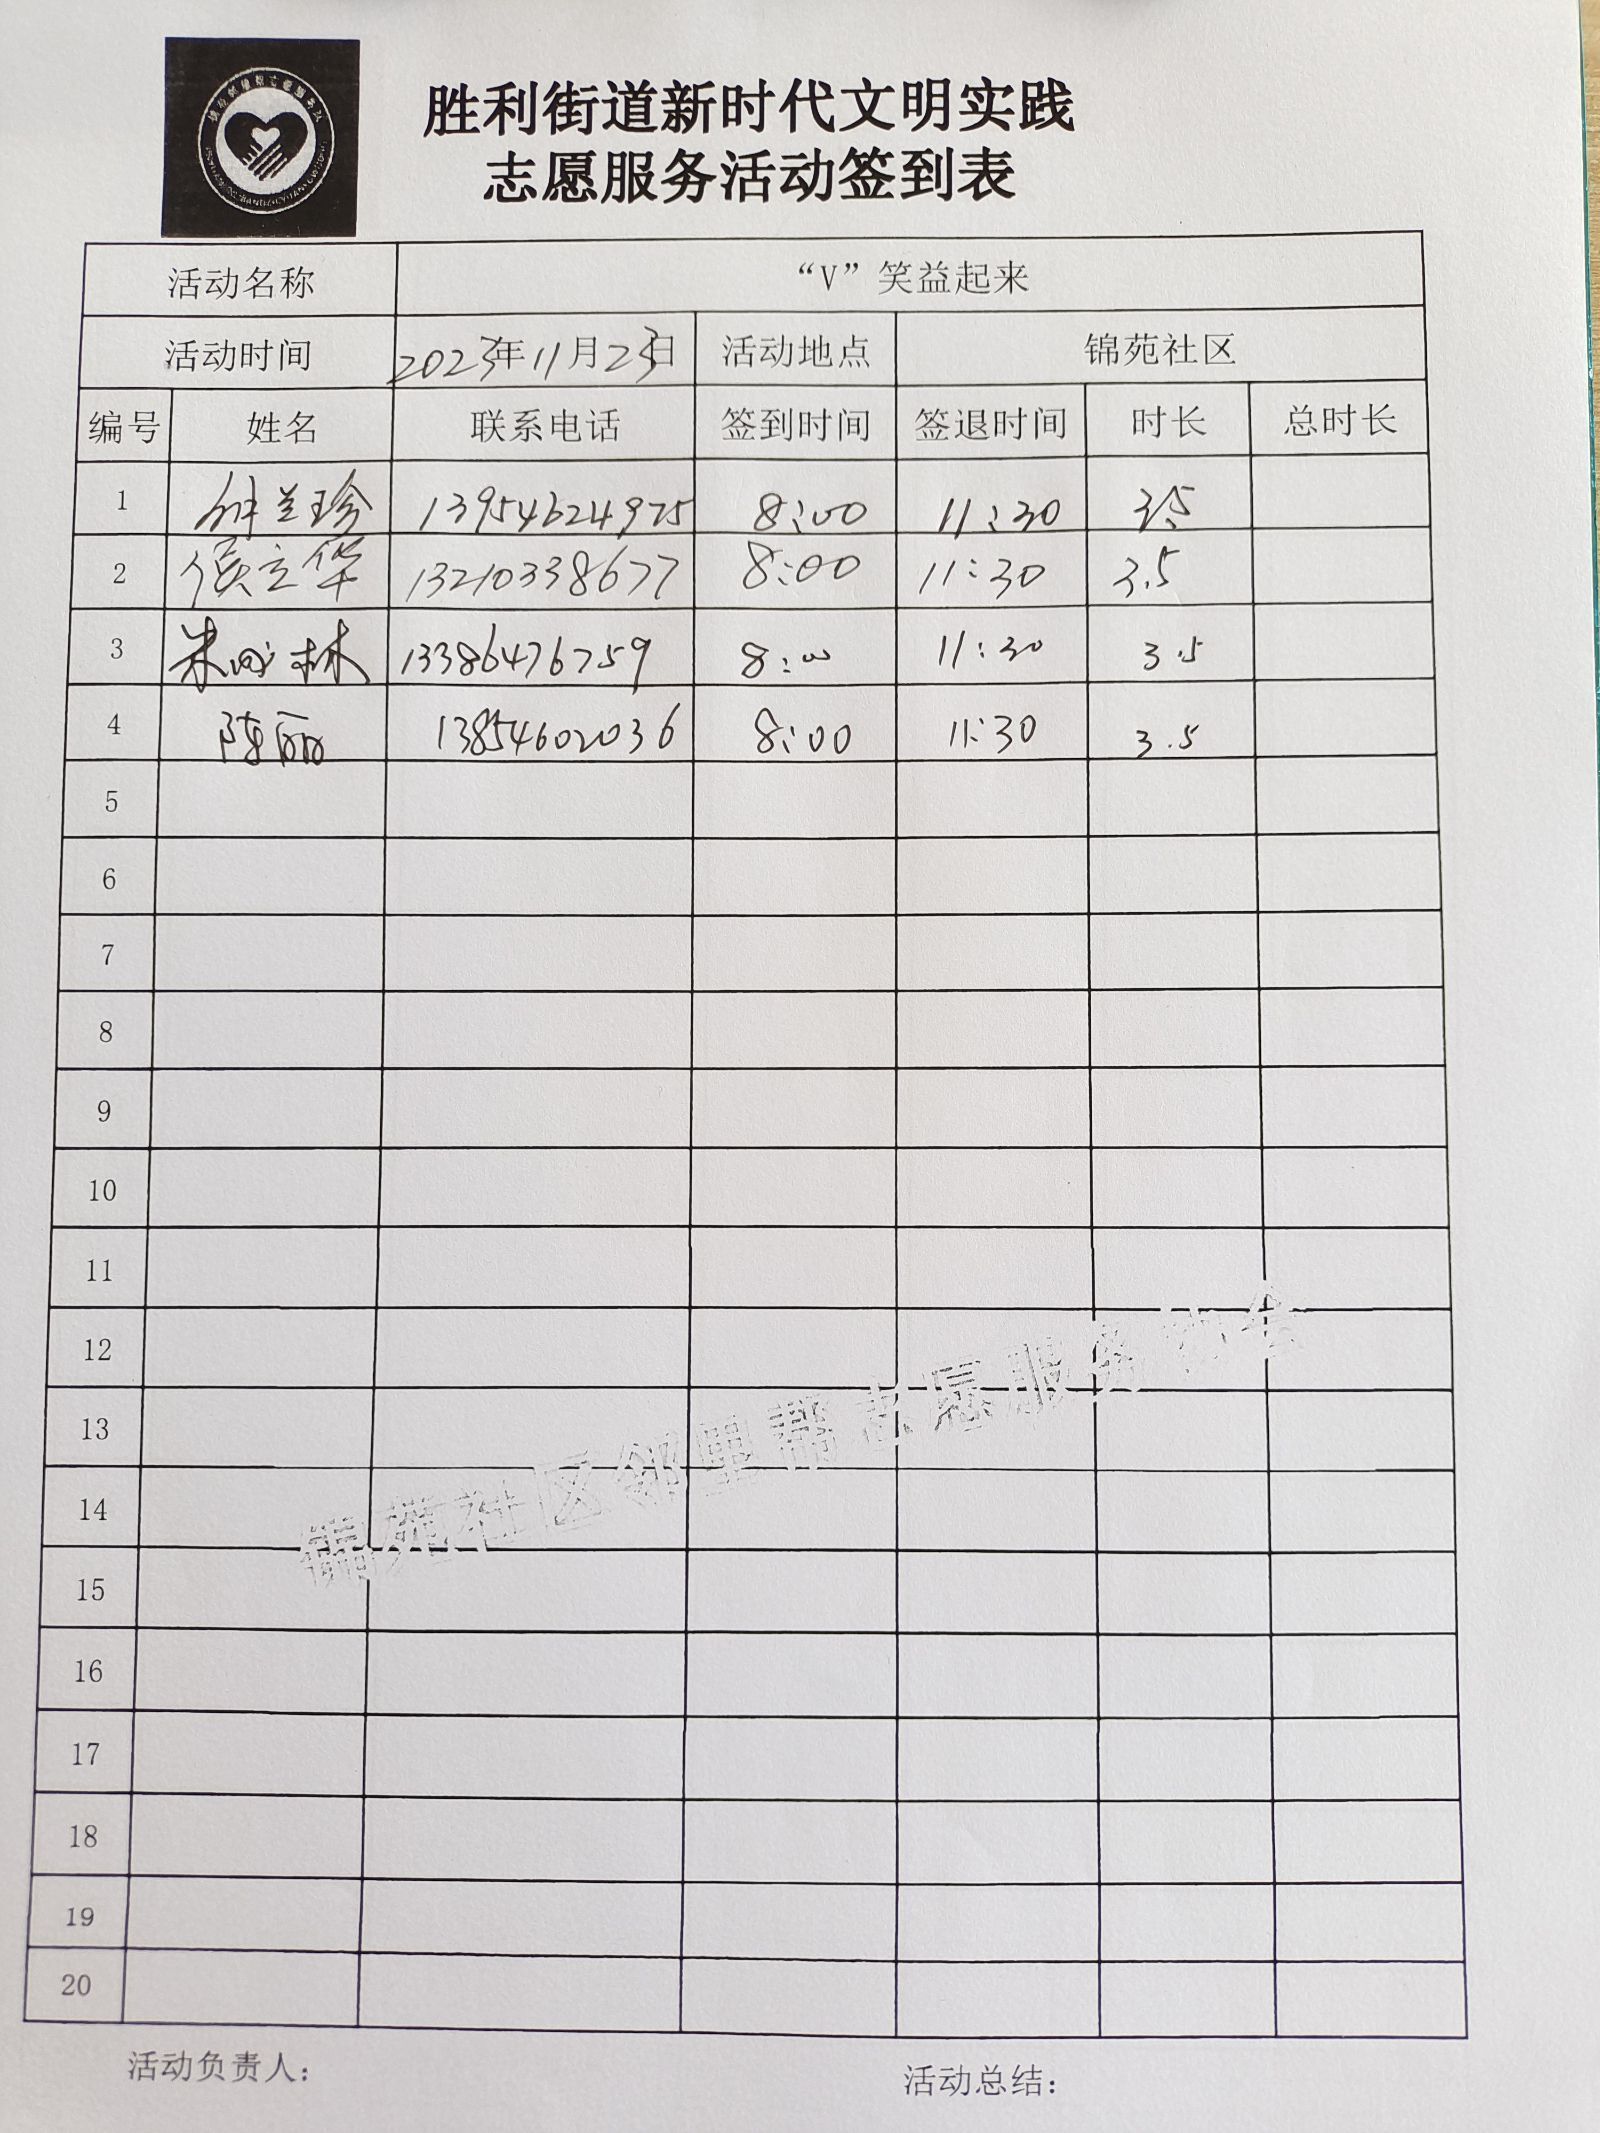 胜利街道新时代文明实践
志愿服务活动签到表
活动名称 “V”笑益起来
活动时间 2023年11月23日 活动地点 锦苑社区
编号 姓名 联系电话 签到时间 签退时间 时长 总时长
1 钟兰珍 13954624975 8:00 11:30 3.5
2 侯立华 13210338677 8:00 11:30 3.5
3 林 13386476759 8:00 11:30 3.5
4 陈丽 13854602036 8:00 11:30 3.5
5
6
7
8
9
10
11
12
13
14
15
16
17
18
19
20
锦苑社区邻里帮志愿服务协会
活动负责人： 活动总结：